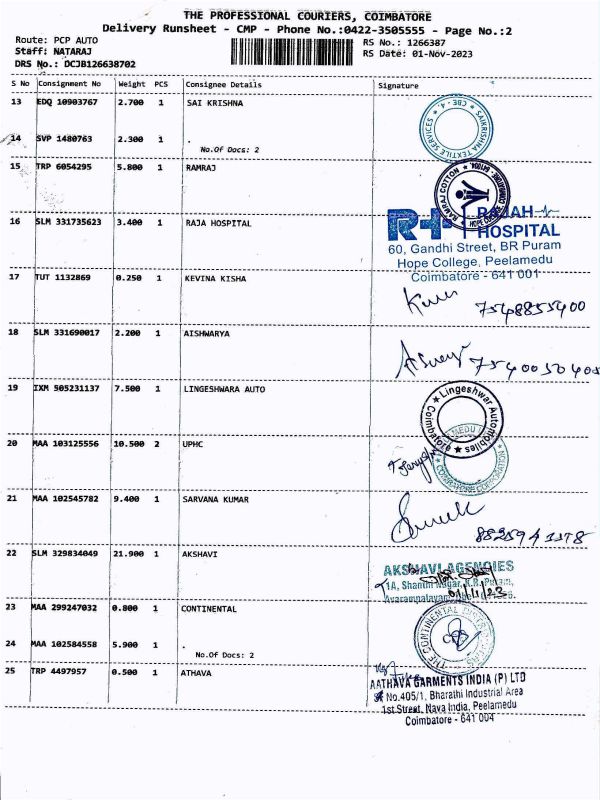 THE PROFESSIONAL COURIERS, COIMBATORE
Delivery Runsheet - CMP - Phone No.:0422-3505555 - Page No.:2
Route: PCP AUTO
Staff: NATARAJ
DRS No.: DCJB126638702
RS No.: 1266387
RS Date: 01-Nov-2023
S No Consignment No Weight PCS Consignee Details Signature
13 EDQ 10903767 2.700 1 SAI KRISHNA
SAIKRISHNA TEXTILE SERVICES ★ CBE - 4.
14 SVP 1480763 2.300 1 .
No.Of Docs: 2
15 TRP 6054295 5.800 1 RAMRAJ
RAMRAJ COTTON
HOPE COLLEGE
16 SLM 331735623 3.400 1 RAJA HOSPITAL
RH RAJAH
HOSPITAL
60, Gandhi Street, BR Puram
Hope College, Peelamedu
Coimbatore - 641 001
17 TUT 1132869 0.250 1 KEVINA KISHA
7548855400
18 SLM 331690017 2.200 1 AISHWARYA
19 IXM 505231137 7.500 1 LINGESHWARA AUTO
★ Lingeshwar Automobiles ★ Coimbatore
20 MAA 103125556 10.500 2 UPHC
COIMBATORE CORPORATION
21 MAA 102545782 9.400 1 SARVANA KUMAR
22 SLM 329834049 21.900 1 AKSHAVI
AKSHAVI AGENCIES
23 MAA 299247032 0.800 1 CONTINENTAL
THE CONTINENTAL
24 MAA 102584558 5.900 1 .
No.Of Docs: 2
25 TRP 4497957 0.500 1 ATHAVA
AATHAVA GARMENTS INDIA (P) LTD
No.405/1, Bharathi Industrial Area
1st Street, Nava India, Peelamedu
Coimbatore - 641 004